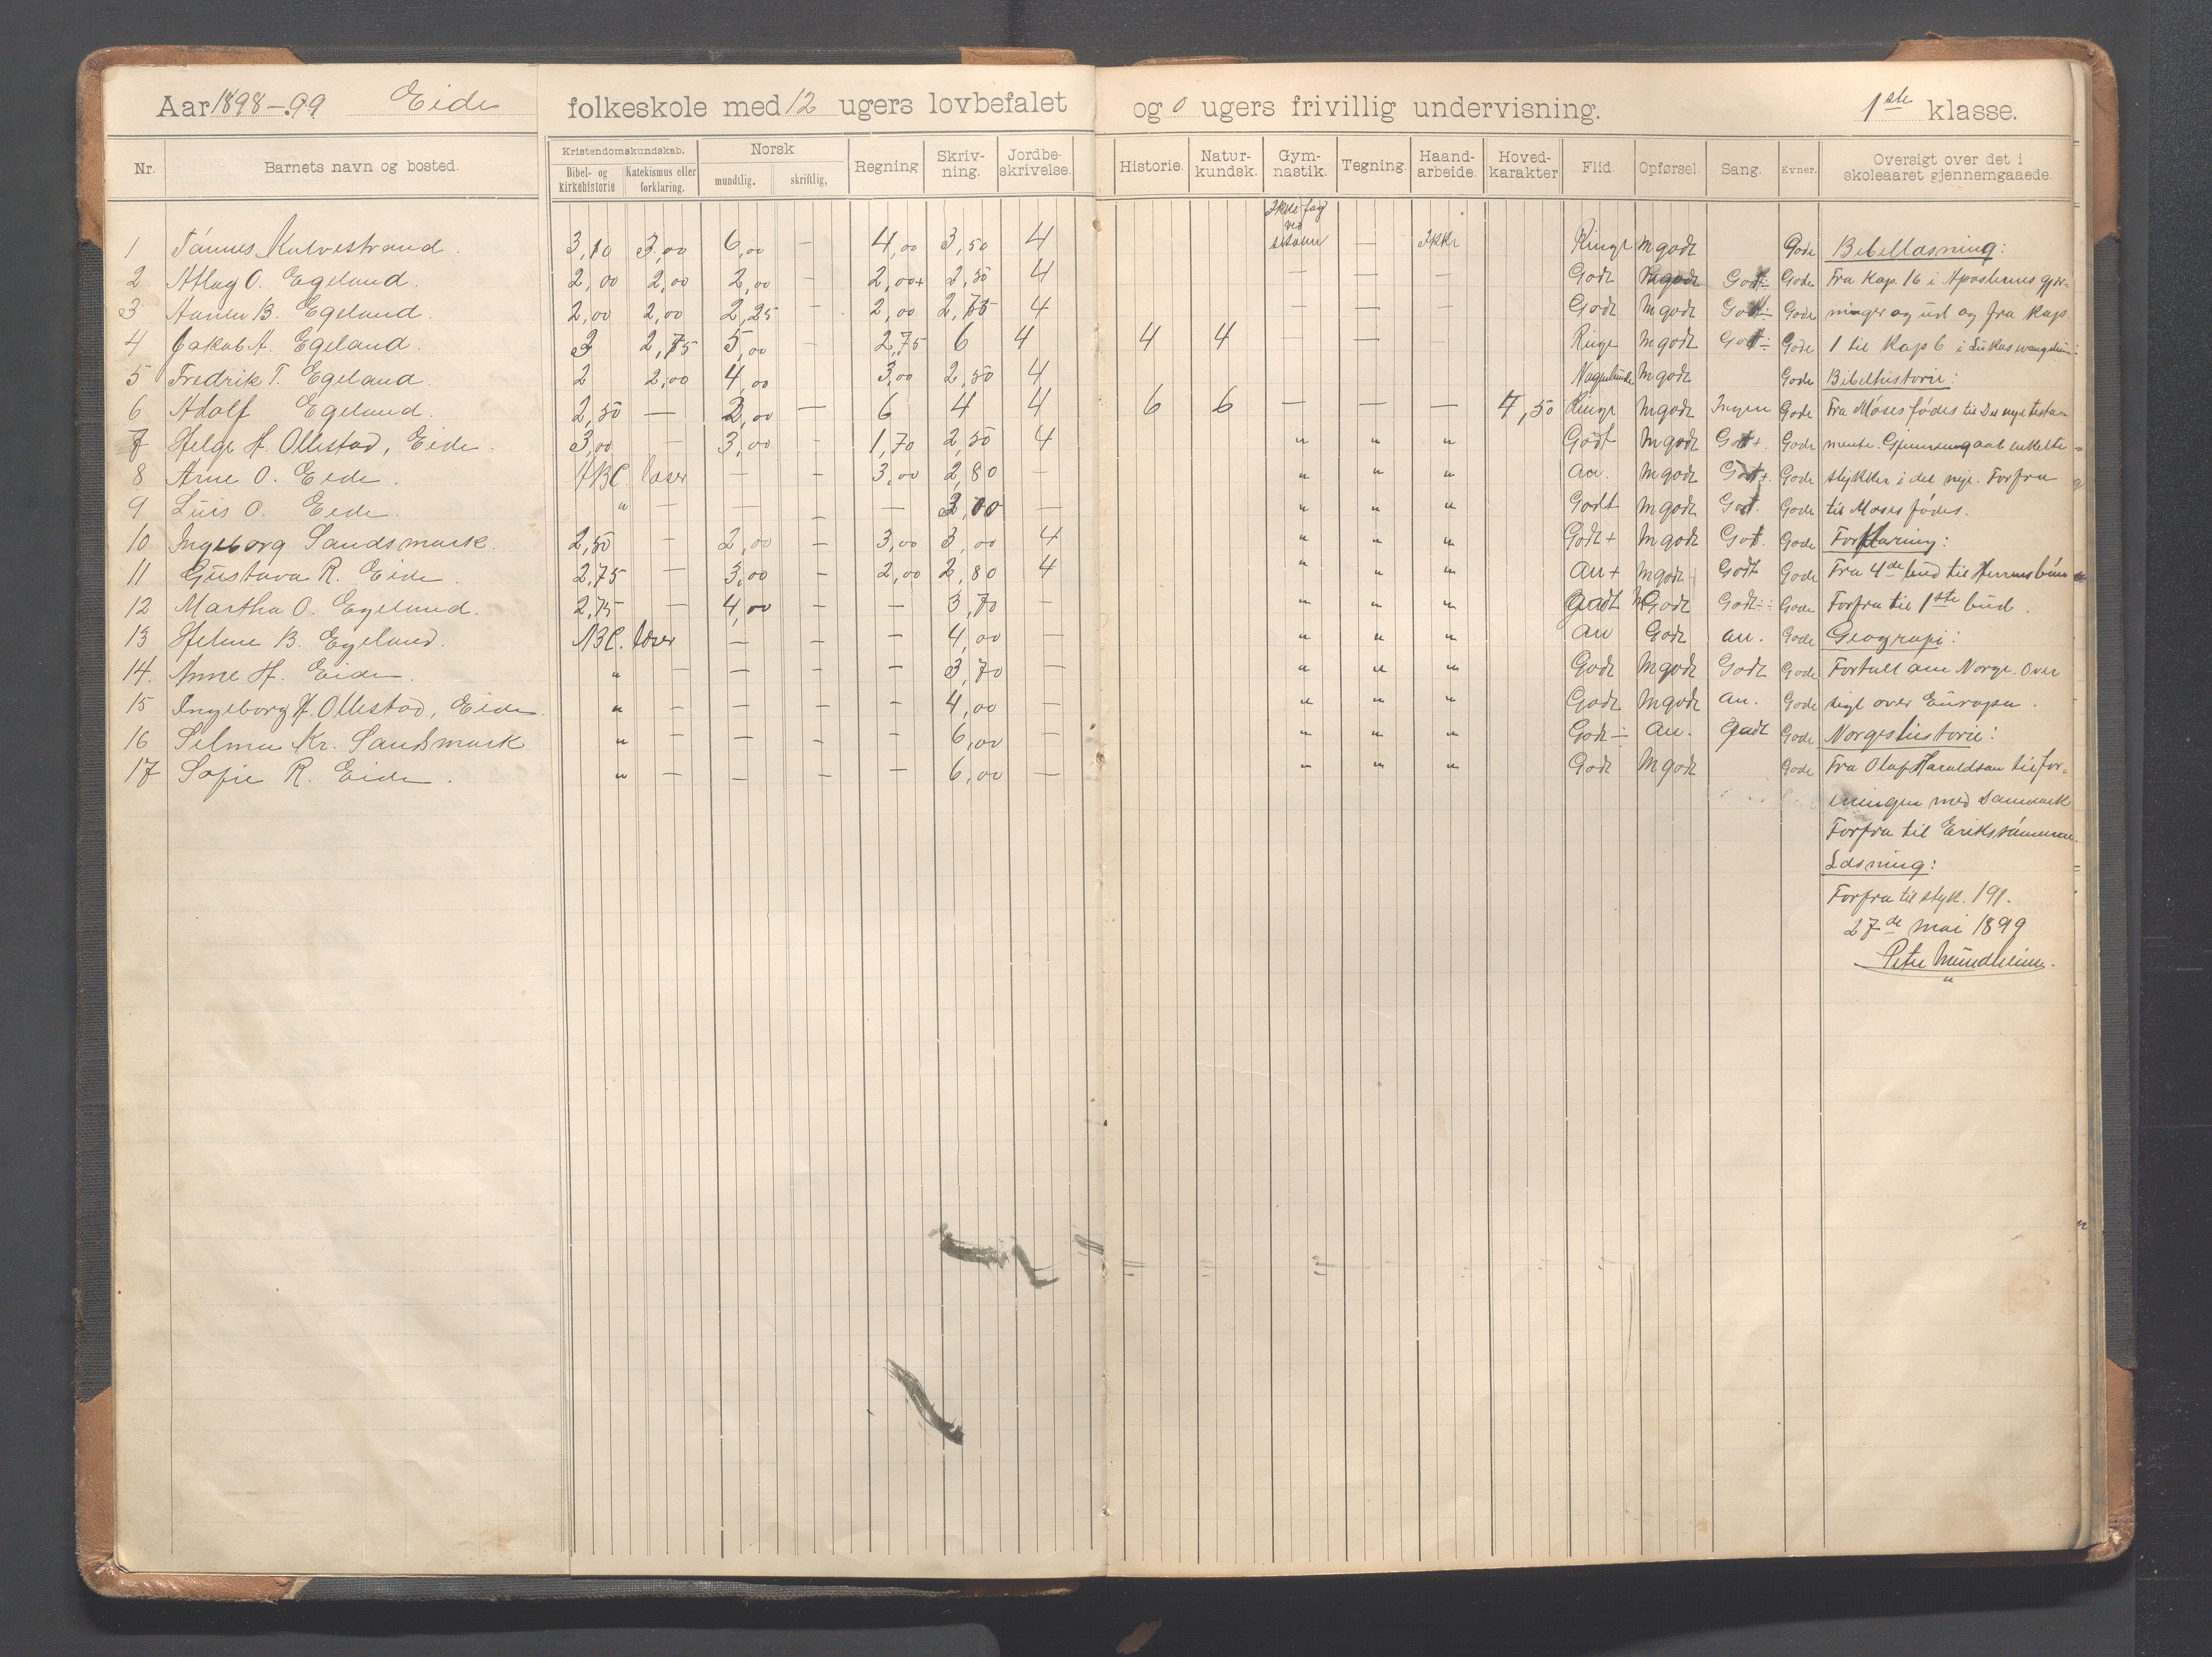 Aar 1898-99 Eide folkeskole med 12 ugers lovbefalet og 0 ugers frivillig undervisning. 1ste klasse.
Nr. Barnets navn og bosted. Kristendomskundskab. Norsk Regning Skriv-ning. Jordbe-skrivelse. Historie. Natur-kundsk. Gym-nastik. Tegning. Haand-arbeide. Hoved-karakter Flid. Opførsel. Sang. Evner. Oversigt over det i skoleaaret gjennemgaaede.
Bibel- og kirkehistorie Katekismus eller forklaring. mundtlig. skriftlig,
Ikke fag ved skolen
1 Tønnes Kulvestrand. 3,10 3,00 6,00 — 4,00 3,50 4 — Ikke Ringe M godt Gode Bibellæsning:
2 Atlag O. Egeland. 2,00 2,00 2,00 — 2,00+ 2,50 4 — — — Godt M godt Godt÷ Gode Fra Kap. 16 i Apostlenes gjer-
3 B. Egeland. 2,00 2,00 2,25 - 2,00 2,75 4 — — — Godt M godt Godt÷ Gode ninger og ud og fra Kap.
4 Jakob A. Egeland. 3 2,75 5,00 — 2,75 6 4 4 4 — — Ringe M godt Godt÷ Gode 1 til Kap 6 i Lukas evangelium:
5 Fredrik T. Egeland. 2 2,00 4,00 3,00 2,50 4 Nogenlunde M godt Gode Bibelhistorie:
6 Adolf Egeland. 2,50 — 2,00 — 6 4 4 6 6 — — — 4,50 Ringe M godt Ingen Gode Fra Moses fødes til Det nye testa-
7 Helge H. Ollestad, Eide. 3,00 — 3,00 — 1,70 2,50 4 " " " Godt M godt Godt+ Gode mente. Gjennemgaat enkelte
8 Arne O. Eide. ABC. læser — — 3,00 2,80 — " " " an. M godt Godt+. Gode stykker i det nye. Forfra
9 Luis O. Eide. " — — — — 3,00 — " " " Godt M godt Godt. Gode til Moses fødes.
10 Ingeborg Sandsmark. 2,50 — 2,00 — 3,00 3,00 4 " " " Godt+ M godt Godt. Gode Forklaring:
11 Gustava R. Eide. 2,75 — 3,00 — 2,00 2,80 4 " " " an+ M godt Godt Gode Fra 4de bud til Herrens bøn
12 Martha O. Egeland. 2,75 — 4,00 — — 3,70 — " " " Godt M Godt Godt÷ Gode Forfra til 1ste bud.
13 Helene B. Egeland. ABC. læser — — — 4,00 — " " " an Godt an. Gode Geograpi:
14. Anne H. Eide. " — — — — 3,70 — " " " Godt M godt Godt Gode Fortalt om Norge. Over
15 Ingeborg H. Ollestad, Eide. " — — — — 4,00 — " " " Godt M godt an. Gode sigt over Europa.
16 Selma Kr. Sandsmark " — — — — 6,00 — " " " Godt÷ an. Godt Gode Norgeshistorie:
17 Sofie R. Eide. " — — — — 6,00 — " " " Godt M godt Gode Fra Olaf Haraldsøn til for-
eningen med Danmark
Forfra til Erikssønnerne.
Læsning:
Forfra til styk. 191.
27de mai 1899
Peter Mundheim.